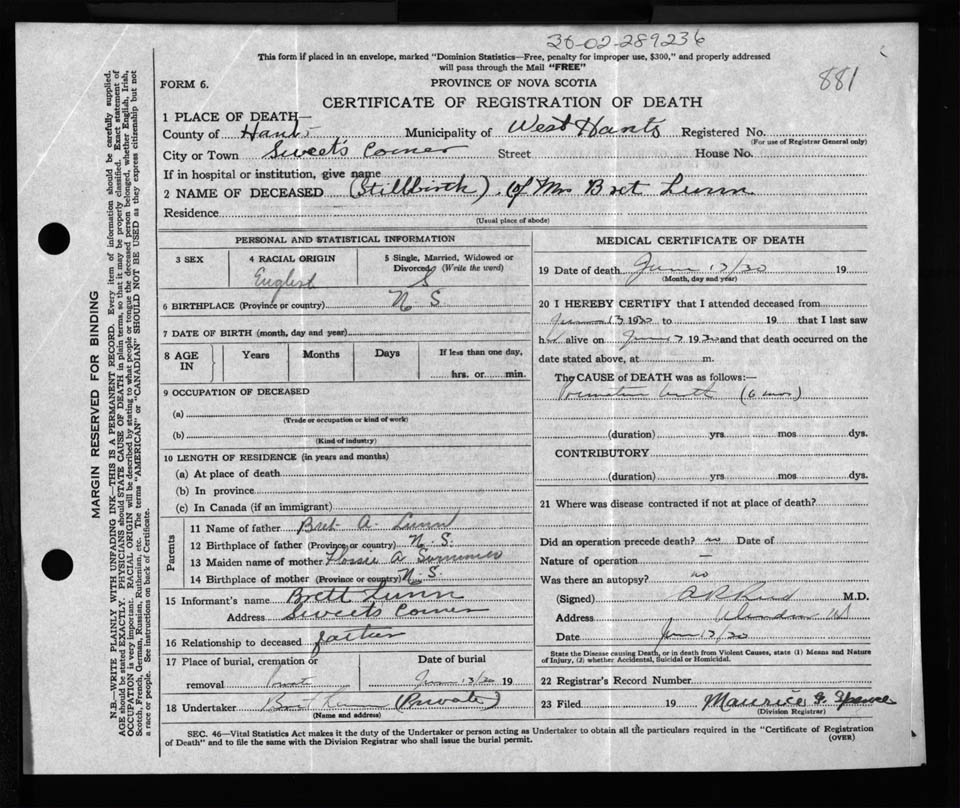 26-02-289236
This form if placed in an envelope, marked "Dominion Statistics—Free, penalty for improper use, $300," and properly addressed
will pass through the Mail "FREE"
881
FORM 6.
PROVINCE OF NOVA SCOTIA
CERTIFICATE OF REGISTRATION OF DEATH
1 PLACE OF DEATH—
County of Hants Municipality of West Hants Registered No.
(For use of Registrar General only)
City or Town Sweet's Corner Street House No.
If in hospital or institution, give name
2 NAME OF DECEASED (Stillbirth) of Mrs Bret Lunn
Residence
(Usual place of abode)
PERSONAL AND STATISTICAL INFORMATION
3 SEX 4 RACIAL ORIGIN 5 Single, Married, Widowed or
Divorced (Write the word)
English S
6 BIRTHPLACE (Province or country) N S.
7 DATE OF BIRTH (month, day and year)
8 AGE IN Years Months Days If less than one day,
hrs. or min.
9 OCCUPATION OF DECEASED
(a)
(Trade or occupation or kind of work)
(b)
(Kind of industry)
10 LENGTH OF RESIDENCE (in years and months)
(a) At place of death
(b) In province
(c) In Canada (if an immigrant)
Parents
11 Name of father Bret A. Lunn
12 Birthplace of father (Province or country) N. S.
13 Maiden name of mother A
14 Birthplace of mother (Province or country) N. S.
15 Informant's name Brett Lunn
Address Sweets Corner
16 Relationship to deceased father
17 Place of burial, cremation or Date of burial
removal 13/30 19
18 Undertaker (Private)
(Name and address)
MEDICAL CERTIFICATE OF DEATH
19 Date of death 19
(Month, day and year)
20 I HEREBY CERTIFY that I attended deceased from
13 1930 to 19 that I last saw
h alive on 1930 and that death occurred on the
date stated above, at m.
The CAUSE of DEATH was as follows:—
Premature birth (6 mos)
(duration) yrs mos dys.
CONTRIBUTORY
(duration) yrs mos dys.
21 Where was disease contracted if not at place of death?
Did an operation precede death? no Date of
Nature of operation —
Was there an autopsy? no
(Signed) M.D.
Address
Date
State the Disease causing Death, or in death from Violent Causes, state (1) Means and Nature
of Injury, (2) whether Accidental, Suicidal or Homicidal.
22 Registrar's Record Number
23 Filed 19 Maurice
(Division Registrar)
SEC. 46—Vital Statistics Act makes it the duty of the Undertaker or person acting as Undertaker to obtain all the particulars required in the "Certificate of Registration
of Death" and to file the same with the Division Registrar who shall issue the burial permit.
(OVER)
MARGIN RESERVED FOR BINDING
N.B.—WRITE PLAINLY WITH UNFADING INK—THIS IS A PERMANENT RECORD. Every item of information should be carefully supplied.
AGE should be stated EXACTLY. PHYSICIANS should STATE CAUSE OF DEATH in plain terms, so that it may be properly classified. Exact statement of
OCCUPATION is very important. RACIAL ORIGIN will be described by stating to what people or tongue the deceased person belonged, whether English, Irish,
Scotch, French, German, Russian, Ruthenian, etc. The terms "AMERICAN" or "CANADIAN" SHOULD NOT BE USED as they express citizenship but not
a race or people. See instructions on back of Certificate.